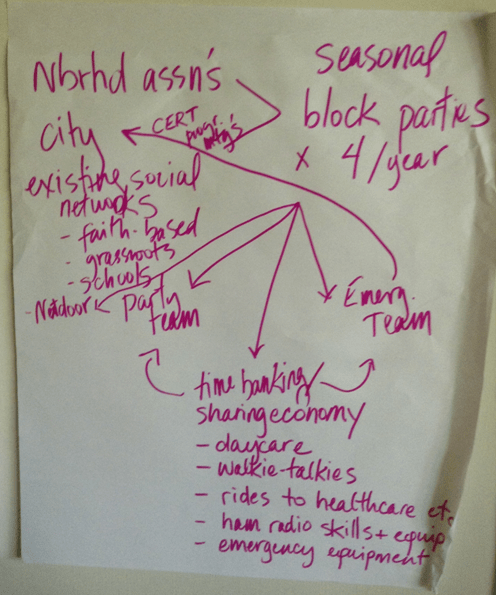 Nbrhd assn's
city
CERT
progr.
mtg's
existing social
networks
- faith-based
- grassroots
- schools
- Nextdoor
seasonal
block parties
x 4/year
party
team
Emerg.
Team
time banking/
sharing economy
- daycare
- walkie-talkies
- rides to healthcare etc.
- ham radio skills + equip
- emergency equipment